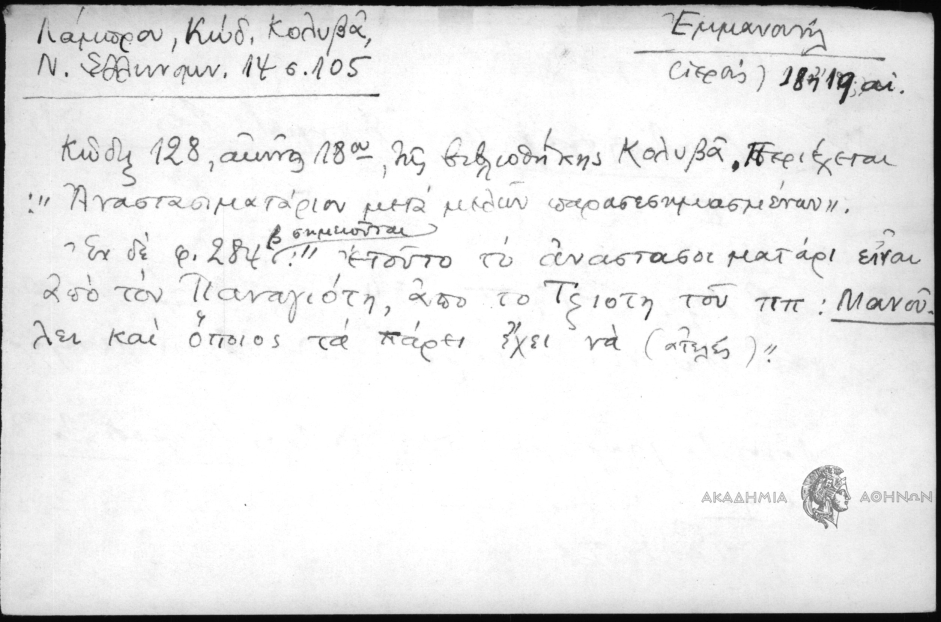 Λάμπρου, Κώδ. Κολυβᾶ,
Ν. Ἑλληνομν. 14 σ. 105
Ἐμμανουήλ
(ἱερεύς) 18ἢ19 αἰ.
Κώδιξ 128, αἰῶνος 18ου, τῆς βιβλιοθήκης Κολυβᾶ. Περιέχεται
:" Ἀναστασιματάριον μετὰ μελῶν παρασεσημασμένων".
Ἐν δὲ φ. 284β σημειοῦται :" ἐτοῦτο τὸ ἀναστασοιματάρι εἶναι
ἀπὸ τὸν Παναγιότη, ἀπο το Τζιοτη τοῦ ππ : Μανού-
λει καὶ ὅποιος τὰ πάρει ἔχει νὰ (ἀτελές)".
ΑΚΑΔΗΜΙΑ ΑΘΗΝΩΝ